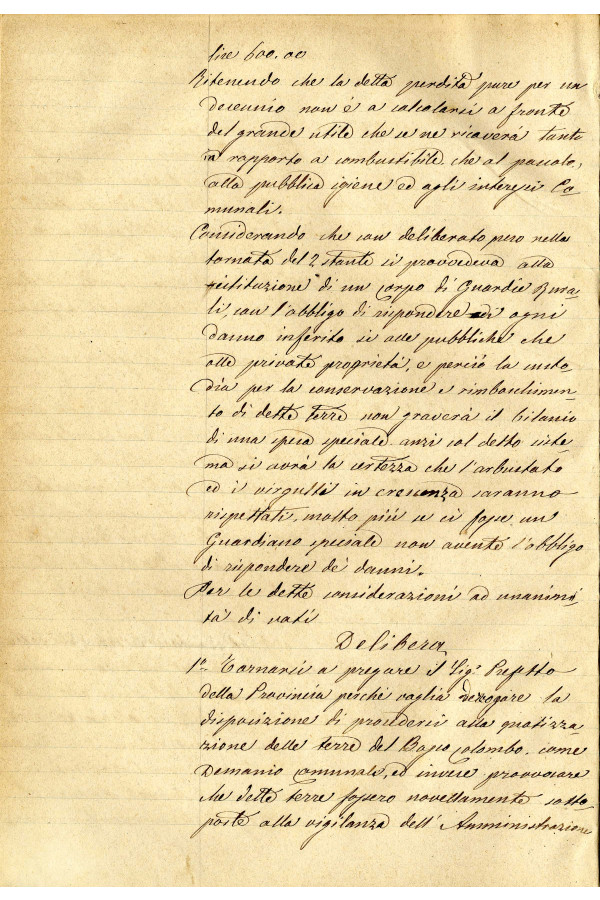 lire 600.00
Ritenendo che la detta perdita pure per un
decennio non è a calcolarsi a fronte
del grande utile che se ne ricaverà tanto
in rapporto a combustibile che al pascolo,
alla pubblica igiene ed agli interessi Co-
munali.
Considerando che con deliberato preso nella
tornata del 2 stante si provvedeva alla
istituzione di un corpo di Guardie Rura-
li, con l'obbligo di rispondere di ogni
danno inferito si alle pubbliche che
alle private proprietà, e perciò la custo-
dia per la conservazione e rimboschimen-
to di dette terre non graverà il bilancio
di una spesa speciale anzi col detto siste
ma si avrà la certezza che l'arbustato
ed i virgulti in crescenza saranno
rispettati, molto più se ci fosse un
Guardiano speciale non avente l'obbligo
di rispondere de' danni.
Per le dette considerazioni ad unanimi-
tà di voti
Delibera
1° Tornarsi a pregare il Sig. Prefetto
della Provincia perché voglia derogare la
disposizione di procedersi alla quotizza-
zione delle terre del Bosco Colombo, come
Demanio comunale, ed invece provocare
che dette terre fossero novellamente sotto
poste alla vigilanza dell'Amministrazione